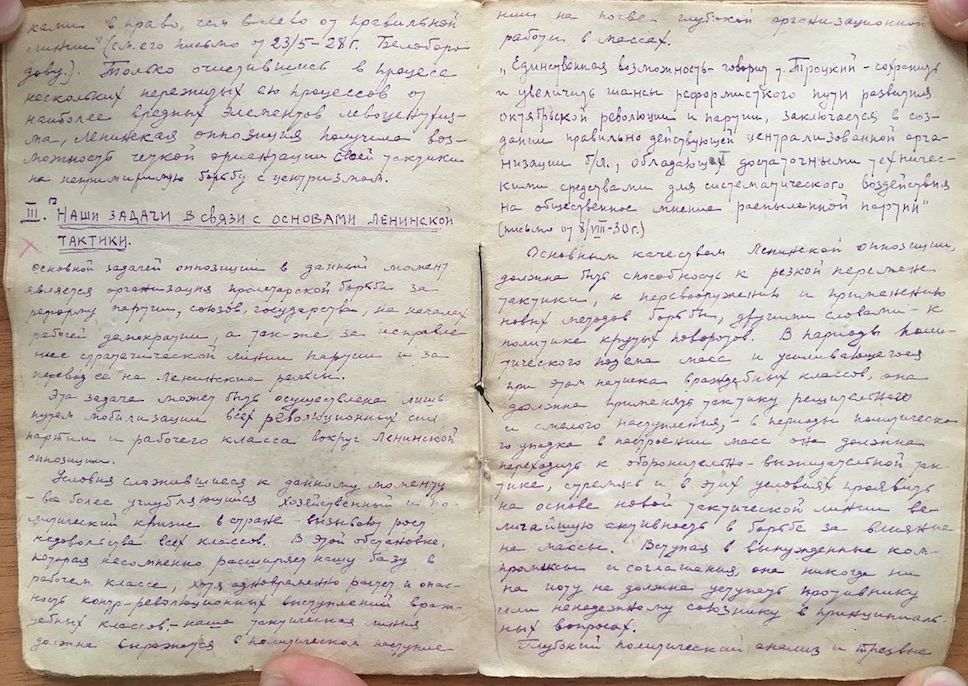 ками вправо, чем влево от правильной
линии" (см. его письмо от 23/5-28 г. Белоборо-
дову.). Только очистившись в процессе
нескольких пережитых ею процессов от
наиболее вредных элементов левоцентриз-
ма, Ленинская оппозиция получила воз-
можность четкой ориентации своей тактики
на непримиримую борьбу с центризмом.
III. Наши задачи в связи с основами ленинской
тактики.
Основной задачей оппозиции в данный момент
является организация пролетарской борьбы за
реформу партии, союзов, государства, на началах
рабочей демократии, а так-же за исправле-
ние стратегической линии партии и за
перевод ее на Ленинские рельсы.
Эта задача может быть осуществлена лишь
путем мобилизации всех революционных сил
партии и рабочего класса вокруг Ленинской
оппозиции.
Условия сложившиеся к данному моменту
- все более углубляющийся хозяйственный и по-
литический кризис в стране - вызывают рост
недовольства всех классов. В этой обстановке,
которая несомненно расширяет нашу базу в
рабочем классе, хотя одновременно растет и опас-
ность контр-революционных выступлений враж-
дебных классов, - наша тактическая линия
должна выражаться в политическом наступле-
нии на почве глубокой организационной
работы в массах.
"Единственная возможность - говорит т. Троцкий - сохранить
и увеличить шансы реформистского пути развития
октябрьской революции и партии, заключается в соз-
дании правильно действующей централизованной орга-
низации б/л., обладающей достаточными техничес-
кими средствами для систематического воздействия
на общественное мнение распыленной партии"
(письмо от 8/VIII-30 г.)
Основным качеством Ленинской оппозиции,
должна быть способность к резкой перемене
тактики, к перевооружению и применению
новых методов борьбы, другими словами - к
политике крутых поворотов. В периоды поли-
тического подъема масс и усиливающегося
при этом натиска враждебных классов, она
должна применять тактику решительного
и смелого наступления, - в периоды политическо-
го упадка в настроении масс она должна
переходить к оборонительно-выжидательной так-
тике, стремясь и в этих условиях проявить
на основе новой тактической линии ве-
личайшую активность в борьбе за влияние
на массы. Вступая в вынужденные ком-
промиссы и соглашения, она никогда ни
на йоту не должна уступать противнику
или ненадежному союзнику в принципиаль-
ных вопросах.
Глубокий политический анализ и трезвые